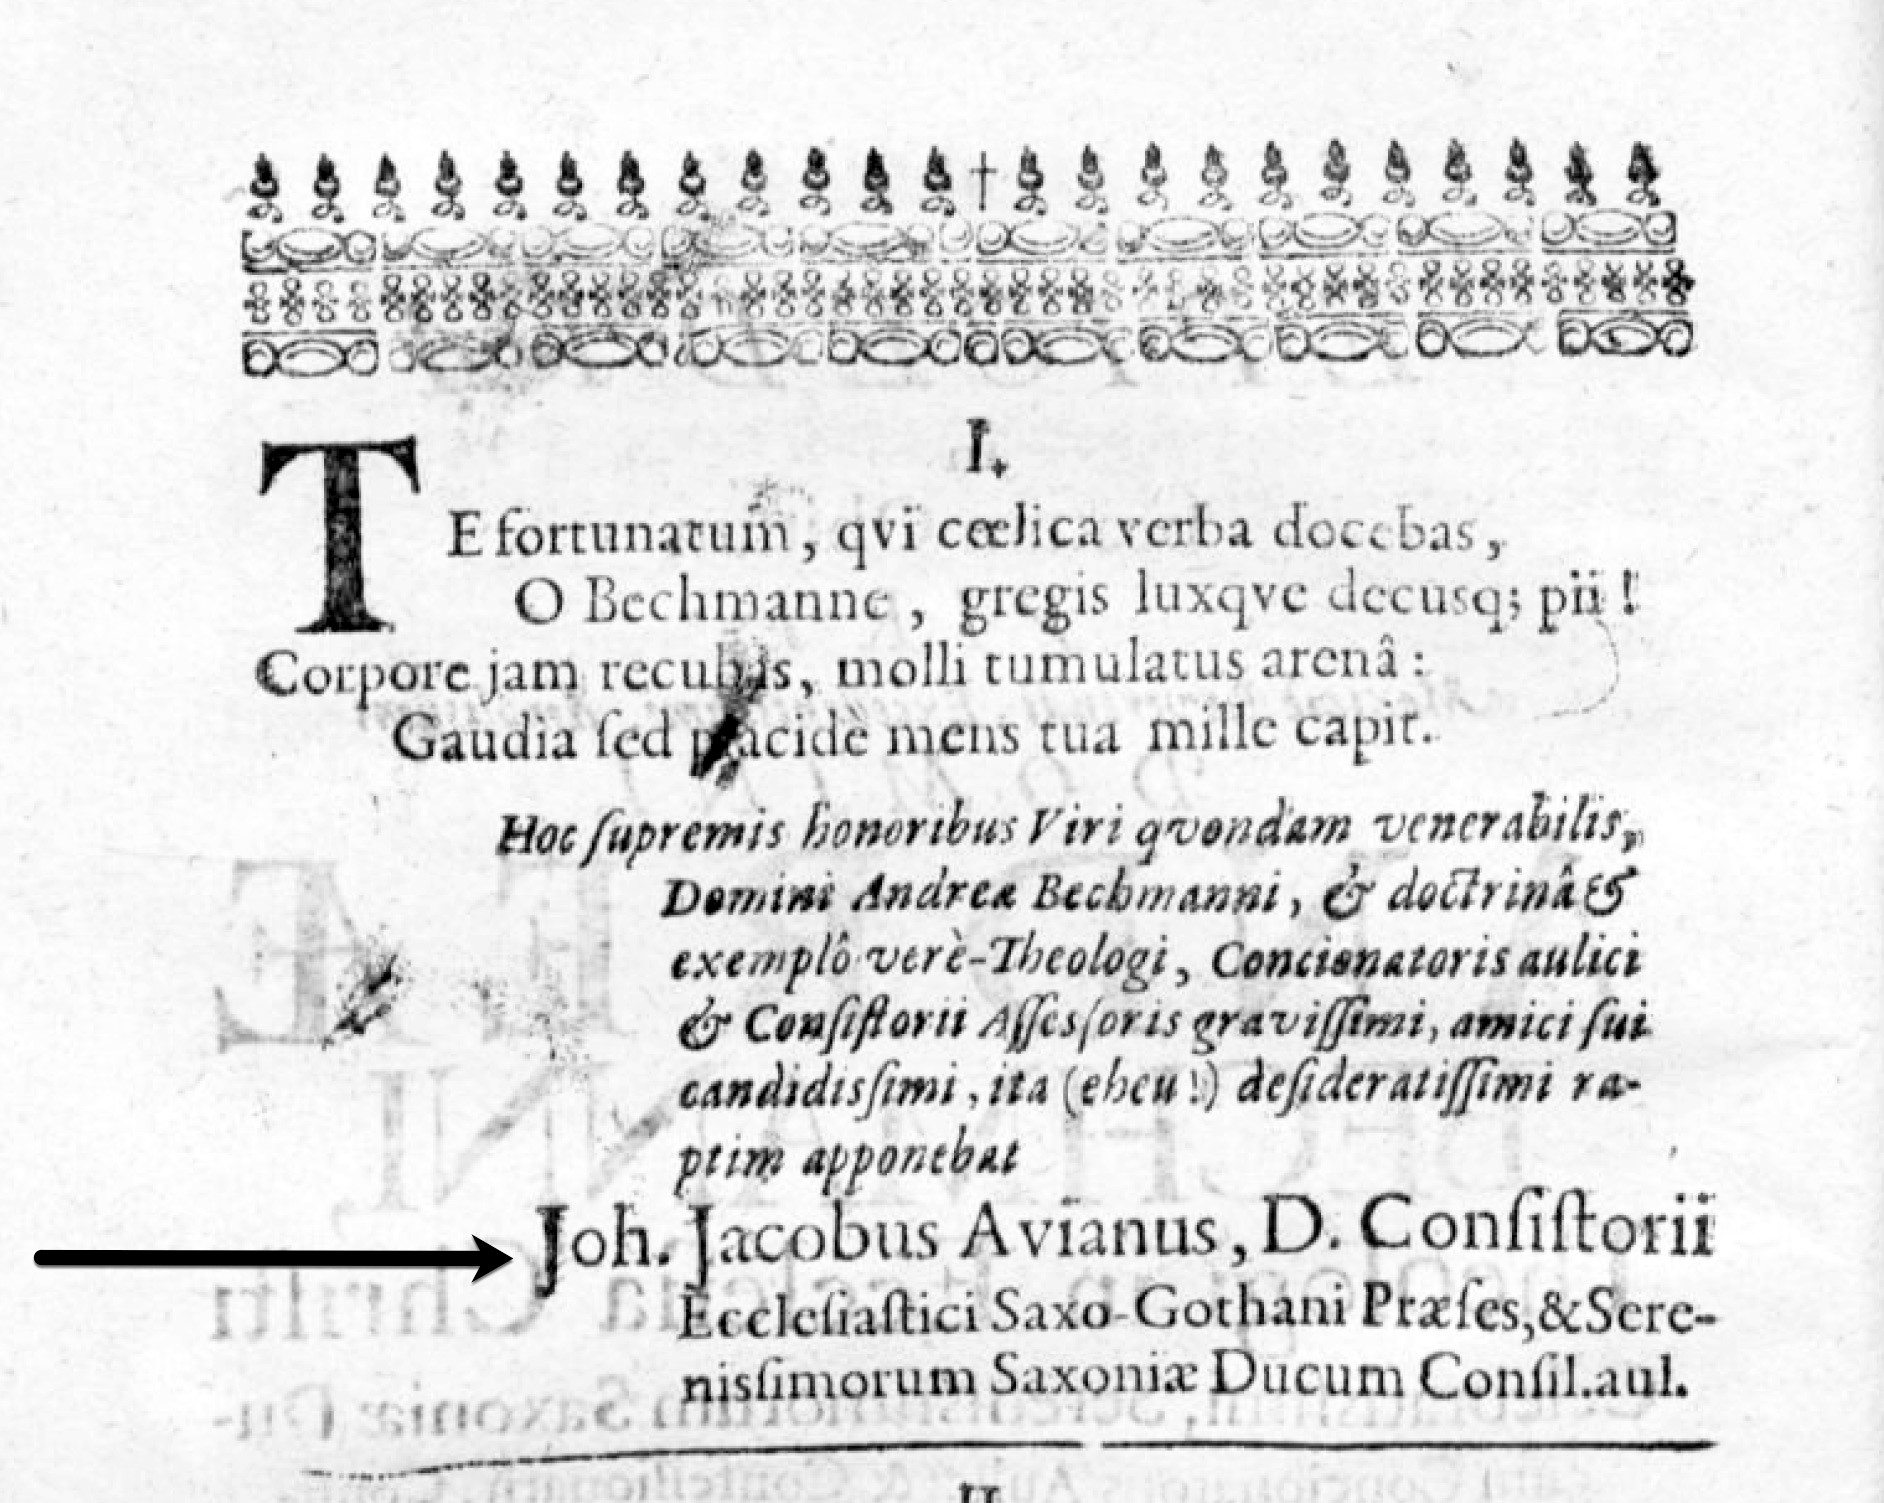 I.
TE fortunatum, qvi cœlica verba docebas,
O Bechmanne, gregis luxqve decusq; pii!
Corpore jam recubas, molli tumulatus arenâ:
Gaudia ſed placidè mens tua mille capit.
Hoc ſupremis honoribus Viri qvondam venerabilis,
Domini Andreæ Bechmanni, & doctrinâ &
exemplô verè-Theologi, Concionatoris aulici
& Conſiſtorii Aſſesſoris graviſſimi, amici ſui
candidisſimi, ita (eheu!) deſideratiſſimi ra-
ptim apponebat
Joh. Jacobus Avianus, D. Conſiſtorii
Eccleſiaſtici Saxo-Gothani Præſes, & Sere-
nisſimorum Saxoniæ Ducum Conſil. aul.
II